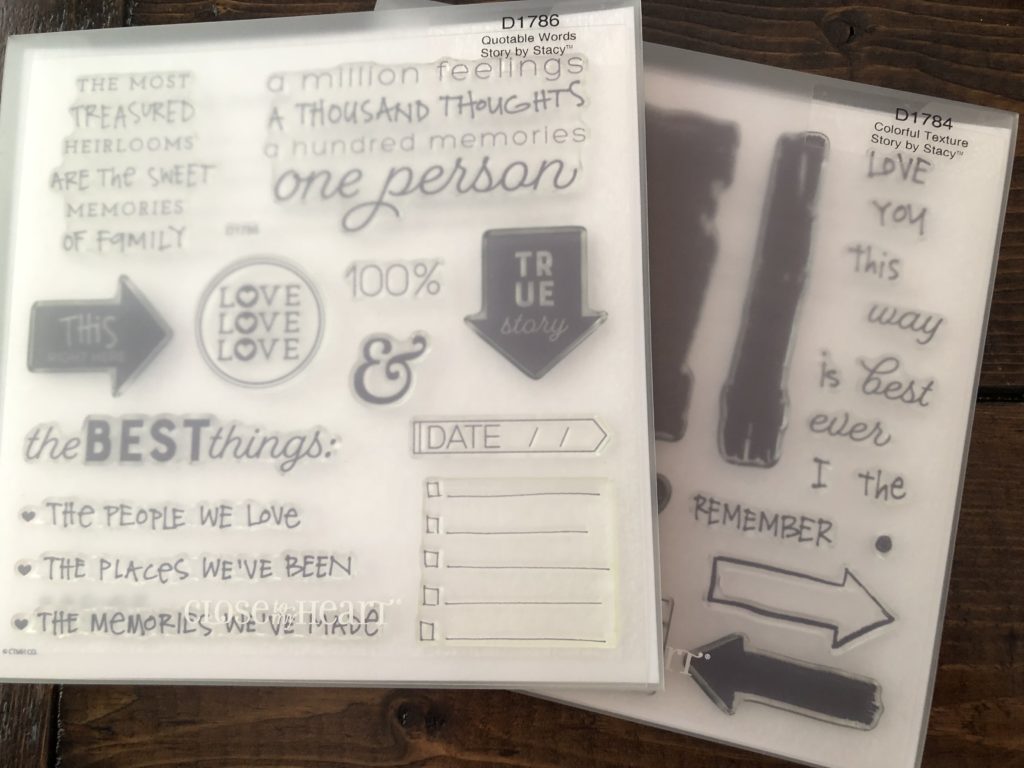 D1786
Quotable Words
Story by Stacy™
THE MOST
TREASURED
HEIRLOOMS
ARE THE SWEET
MEMORIES
OF FAMILY
a million feelings
A THOUSAND THOUGHTS
a hundred memories
one person
D1786
THIS
RIGHT HERE
LOVE
LOVE
LOVE
100%
&
TR
UE
story
the BEST things:
DATE / /
THE PEOPLE WE LOVE
THE PLACES WE'VE BEEN
THE MEMORIES WE'VE MADE
CLOSE TO MY HEART™
© CTMH CO.
D1784
Colorful Texture
Story by Stacy™
LOVE
YOU
this
way
is best
ever
I the
REMEMBER